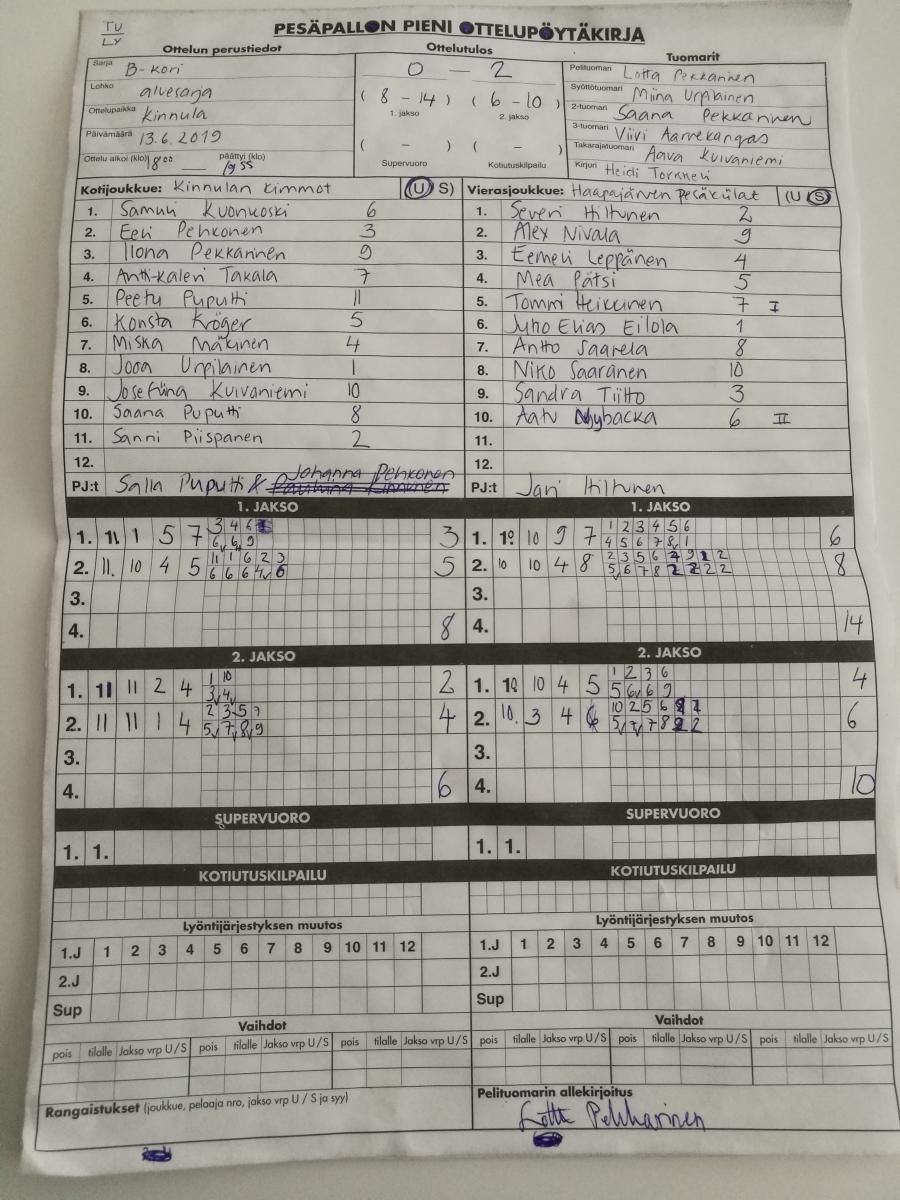 TU
LY
PESÄPALLON PIENI OTTELUPÖYTÄKIRJA
Ottelun perustiedot
Sarja B-kori
Lohko aluesarja
Ottelupaikka Kinnula
Päivämäärä 13.6.2019
Ottelu alkoi (klo) 18 00 päättyi (klo) 19 55
Ottelutulos
0 - 2
( 8 - 14 ) ( 6 - 10 )
1. jakso 2. jakso
( - ) ( - )
Supervuoro Kotiutuskilpailu
Tuomarit
Pelituomari Lotta Pekkarinen
Syöttötuomari Miina Urpilainen
2-tuomari Saana Pekkarinen
3-tuomari Viivi Aarrekangas
Takarajatuomari Aava Kuivaniemi
Kirjuri Heidi
Kotijoukkue: Kinnulan Kimmot (U S)
1. Samuli Kuonkoski 6
2. Eeli Pehkonen 3
3. Ilona Pekkarinen 9
4. Antti-Kaleri Takala 7
5. Peetu Puputti 11
6. Konsta Kröger 5
7. Miska Mäkinen 4
8. Jooa Urpilainen 1
9. Josefiina Kuivaniemi 10
10. Saana Puputti 8
11. Sanni Piispanen 2
12.
Johanna Pehkonen
PJ:t Salla Puputti &
Vierasjoukkue: Haapajärven Pesäkilat (U S)
1. Severi Hiltunen 2
2. Alex Nivala 9
3. Eemeli Leppänen 4
4. Mea Pätsi 5
5. Tommi Heikkinen 7 I
6. Juho Elias Eilola 1
7. Antto Saarela 8
8. Niko Saaranen 10
9. Sandra Tiitto 3
10. Aatu Nybacka 6 II
11.
12.
PJ:t Jari Hiltunen
1. JAKSO
1. 11 1 5 7 3 4 6 3
6 6 9
2. 11. 10 4 5 11 1 6 2 3 5
6 6 6 4 6
3.
4. 8
1. JAKSO
1. 10 10 9 7 1 2 3 4 5 6 6
4 5 6 7 8 1
2. 10 10 4 8 2 3 5 6 2 9 1 2 8
5 6 7 8 2 2 2 2
3.
4. 14
2. JAKSO
1. 11 11 2 4 1 10 2
3 4
2. 11 11 1 4 2 3 5 7 4
5 7 8 9
3.
4. 6
2. JAKSO
1. 10 10 4 5 1 2 3 6 4
5 6 6 9
2. 10. 3 4 6 10 2 5 6 6
5 7 7 8 2 2
3.
4. 10
SUPERVUORO
1. 1.
SUPERVUORO
1. 1.
KOTIUTUSKILPAILU
KOTIUTUSKILPAILU
Lyöntijärjestyksen muutos
1.J 1 2 3 4 5 6 7 8 9 10 11 12
2.J
Sup
Lyöntijärjestyksen muutos
1.J 1 2 3 4 5 6 7 8 9 10 11 12
2.J
Sup
Vaihdot
pois tilalle Jakso vrp U/S pois tilalle Jakso vrp U/S pois tilalle Jakso vrp U/S
Vaihdot
pois tilalle Jakso vrp U/S pois tilalle Jakso vrp U/S pois tilalle Jakso vrp U/S
Rangaistukset (joukkue, pelaaja nro, jakso vrp U / S ja syy)
Pelituomarin allekirjoitus
Lotta Pekkarinen